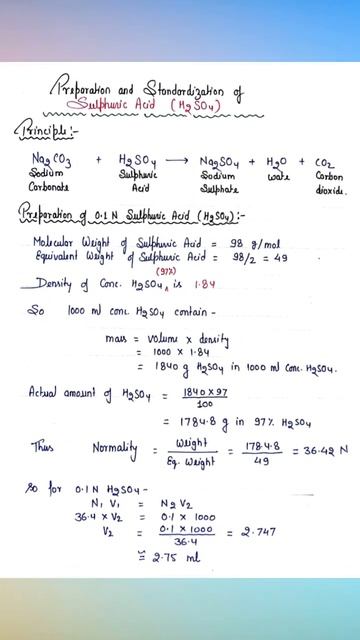 Preparation and Standardization of
Sulphuric Acid (H2SO4)
Principle:-
Na2CO3 + H2SO4 → Na2SO4 + H2O + CO2
Sodium Carbonate Sulphuric Acid Sodium Sulphate wate Carbon dioxide.
Preparation of 0.1 N Sulphuric Acid (H2SO4):-
Molecular Weight of Sulphuric Acid = 98 g/mol
Equivalent Weight of Sulphuric Acid = 98/2 = 49
(97%)
Density of Conc. H2SO4 ^ is 1.84
So 1000 ml conc. H2SO4 contain -
mass = volume x density
= 1000 x 1.84
= 1840 g H2SO4 in 1000 ml Conc. H2SO4.
Actual amount of H2SO4 = 1840 x 97 / 100
= 1784.8 g in 97% H2SO4
Thus Normality = Weight / Eq. Weight = 1784.8 / 49 = 36.42 N
So for 0.1 N H2SO4 -
N1 V1 = N2 V2
36.4 x V2 = 0.1 x 1000
V2 = 0.1 x 1000 / 36.4 = 2.747
≅ 2.75 ml